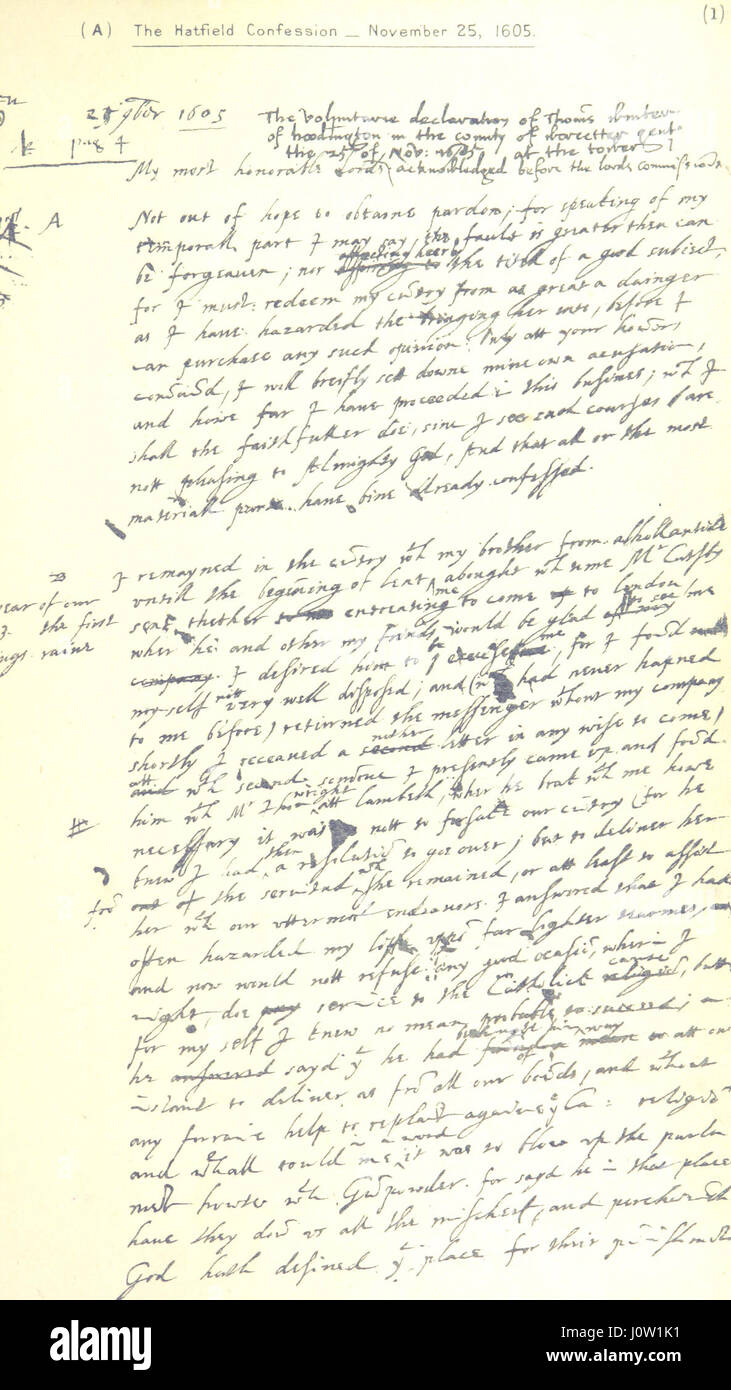 (1)
(A) The Hatfield Confession — November 25, 1605.
9ber 1605
pag 4
The voluntarie declaration of Thomas
of hoodington in the county of worcester gent
the 25 of Nov: 1605 at the tower
acknowledged before the lords commissioners
My most honorable Lords
A
Not out of hope to obtaine pardon; for speaking of my
temporall part I may say, the fault is greater then can
be forgeaven; nor affecting heerby the title of a good subiect,
for I must redeem my cuntry from as great a dainger
as I have hazarded the bringing her into, before I
can purchase any such opinion; Only att your honors
comaund, I will breifly sett downe mine own accusation,
and howe far I have proceeded in this busines; wch I
shall the faithfuller doe, since I see such courses are
nott pleasing to Almighty God, And that all or the most
materiall parts have bine already confessed.
B
year of our
the first
raine
I remayned in the cuntry wth my brother from alhollantide
untill the begining of lent, abought wch time Mr Catesby
sent thether entreating me to come to london
wher he and other my frends would be glad to see me
I desired him to excuse me, for I found
my-self nott very well disposed; and (wch had never hapned
to me before) returned the messenger wthout my company
shortly I receaved another letter in any wise to come,
att wch second I presently came up and found
him wth Mr Thon wright att Lambeth, wher he brak wth me howe
necessary it was nott to forsake our cuntry (for he
knew I had then a resolution to goe over) but to deliver her
from the servitud she remayned, or att least to assist
her wth our uttermost endeavors. I answered that I had
often hazarded my life upon far lighter termes,
and now would nott refuse any good ocasion, wherin I
might doe service to the Catholick cause, butt
for my self I knew no mean probable to succeed;
he sayd yt he had way att an
instant to deliver us from all our bonds, and wthout
any forraine help to replant againe ye Ca: religion
and wthall tould me in a word it was to blow up the parla
ment howse wth Gunpowder. for sayd he in that place
have they don us all the mischeif, and perchance
God hath desined yt place for their punishment
alamy
Image ID: J0W1K1
www.alamy.com